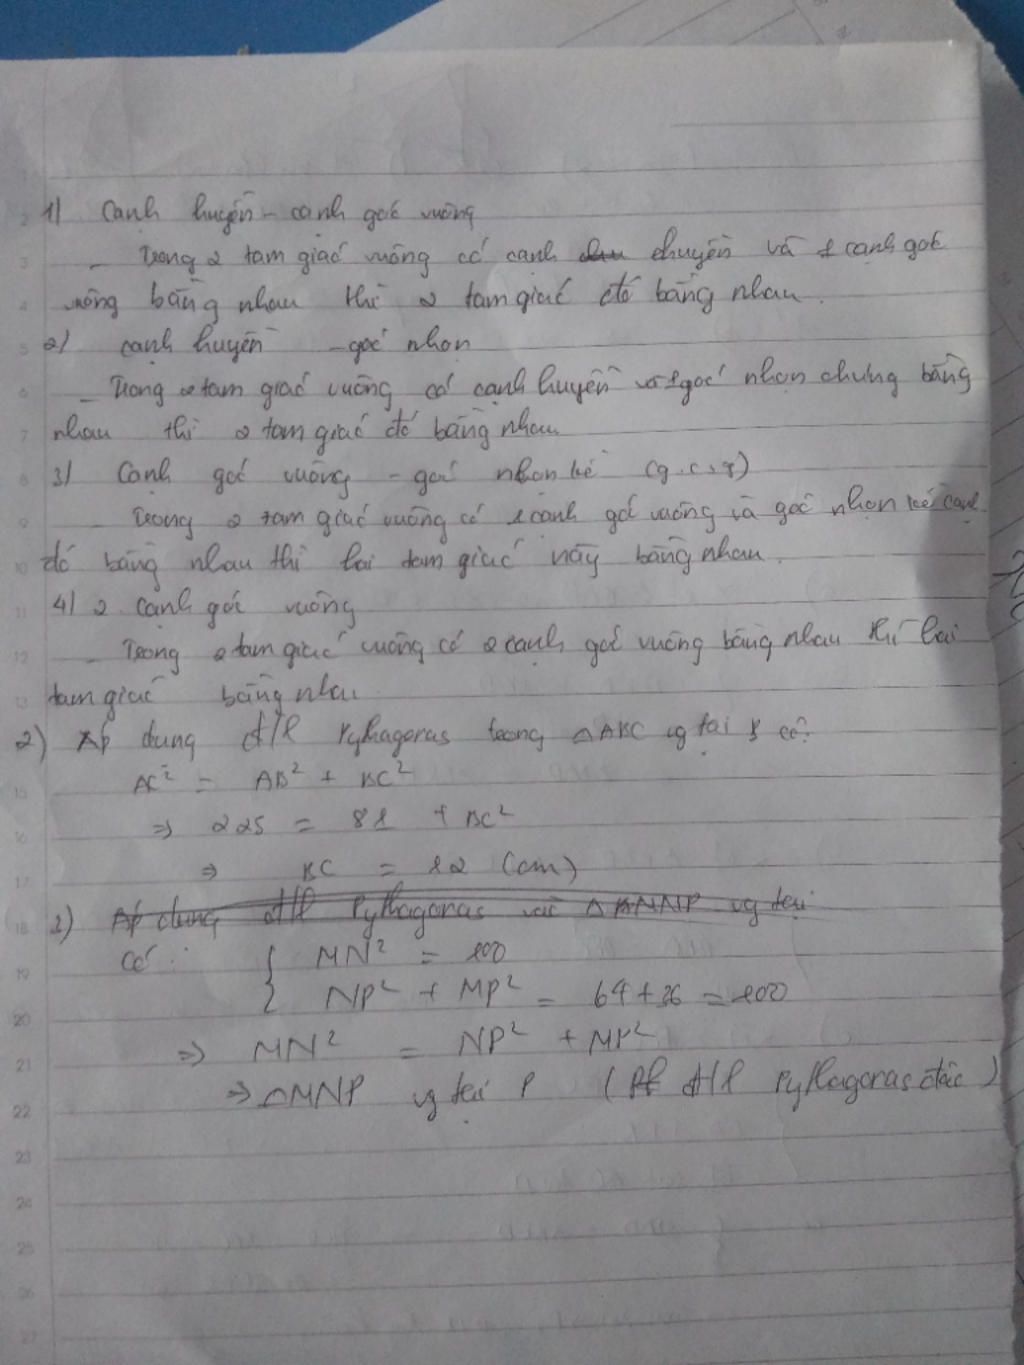 1) Cạnh huyền - cạnh góc vuông
_ Trong 2 tam giác vuông có cạnh chuyền và 1 cạnh góc
vuông bằng nhau thì 2 tam giác đó bằng nhau.
2) cạnh huyền - góc nhọn
_ Trong 2 tam giác vuông có cạnh huyền và 1 góc nhọn chúng bằng
nhau thì 2 tam giác đó bằng nhau
3) Cạnh góc vuông - góc nhọn kề (g.c.g)
_ Trong 2 tam giác vuông có 1 cạnh góc vuông và góc nhọn kề cạnh
đó bằng nhau thì hai tam giác này bằng nhau.
4) 2 cạnh góc vuông
_ Trong 2 tam giác vuông có 2 cạnh góc vuông bằng nhau thì hai
tam giác bằng nhau.
2) Áp dụng đ/l Pythagoras trong △ABC vg tại B có:
AC² = AB² + BC²
=> 225 = 81 + BC²
=> BC = 12 (cm)
3) Áp dụng đ/l Pythagoras vào △MNP vg tại
Có: { MN² = 100
NP² + MP² = 64 + 36 = 100
=> MN² = NP² + MP²
=> △MNP vg tại P ( đ/l Pythagoras đảo )